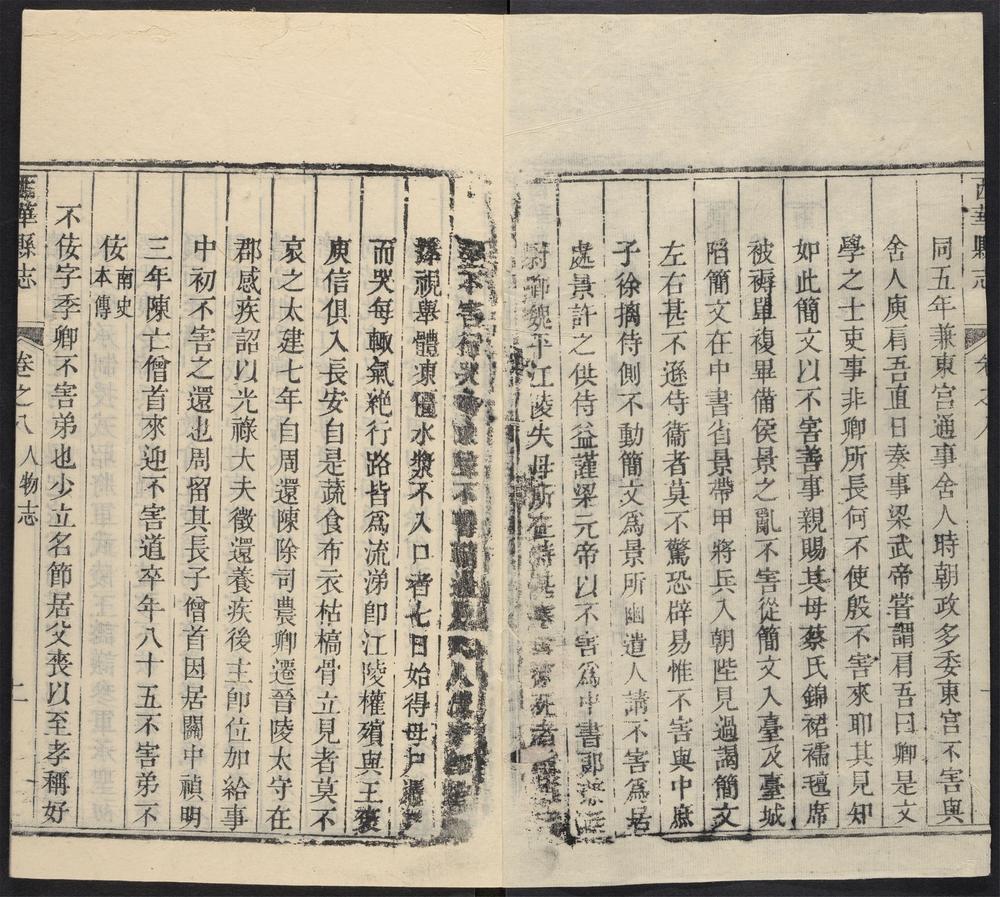 西華縣志
卷之八
同五年兼東宮通事舍人時朝政多委東宮不害與
舍人庾肩吾直日奏事梁武帝嘗謂肩吾曰卿是文
學之士吏事非卿所長何不使殷不害來耶其見知
如此簡文以不害善事親賜其母蔡氏錦裙襦氊席
被褥單複畢備侯景之亂不害從簡文入臺及臺城
陷簡文在中書省景帶甲將兵入朝陛見過謁簡文
左右甚不遜侍衞者莫不驚恐辟易惟不害與中庶
子徐摛侍側不動簡文爲景所幽遣人請不害爲居
處景許之供侍益謹梁元帝以不害爲中書郎兼廷
尉卿魏平江陵失母所在時甚寒雪凍死者
不害行哭
視舉體凍僵水漿不入口者七日始得母尸憑
而哭每輒氣絶行路皆爲流涕卽江陵權殯與王裒
庾信俱入長安自是蔬食布衣枯槁骨立見者莫不
哀之太建七年自周還陳除司農卿遷晉陵太守在
郡感疾詔以光祿大夫徵還養疾後主卽位加給事
中初不害之還也周留其長子僧首因居關中禎明
三年陳亡僧首來迎不害道卒年八十五不害弟不
佞南史本傳
不佞字季卿不害弟也少立名節居父喪以至孝稱好
西華縣志
卷之八 人物志
二